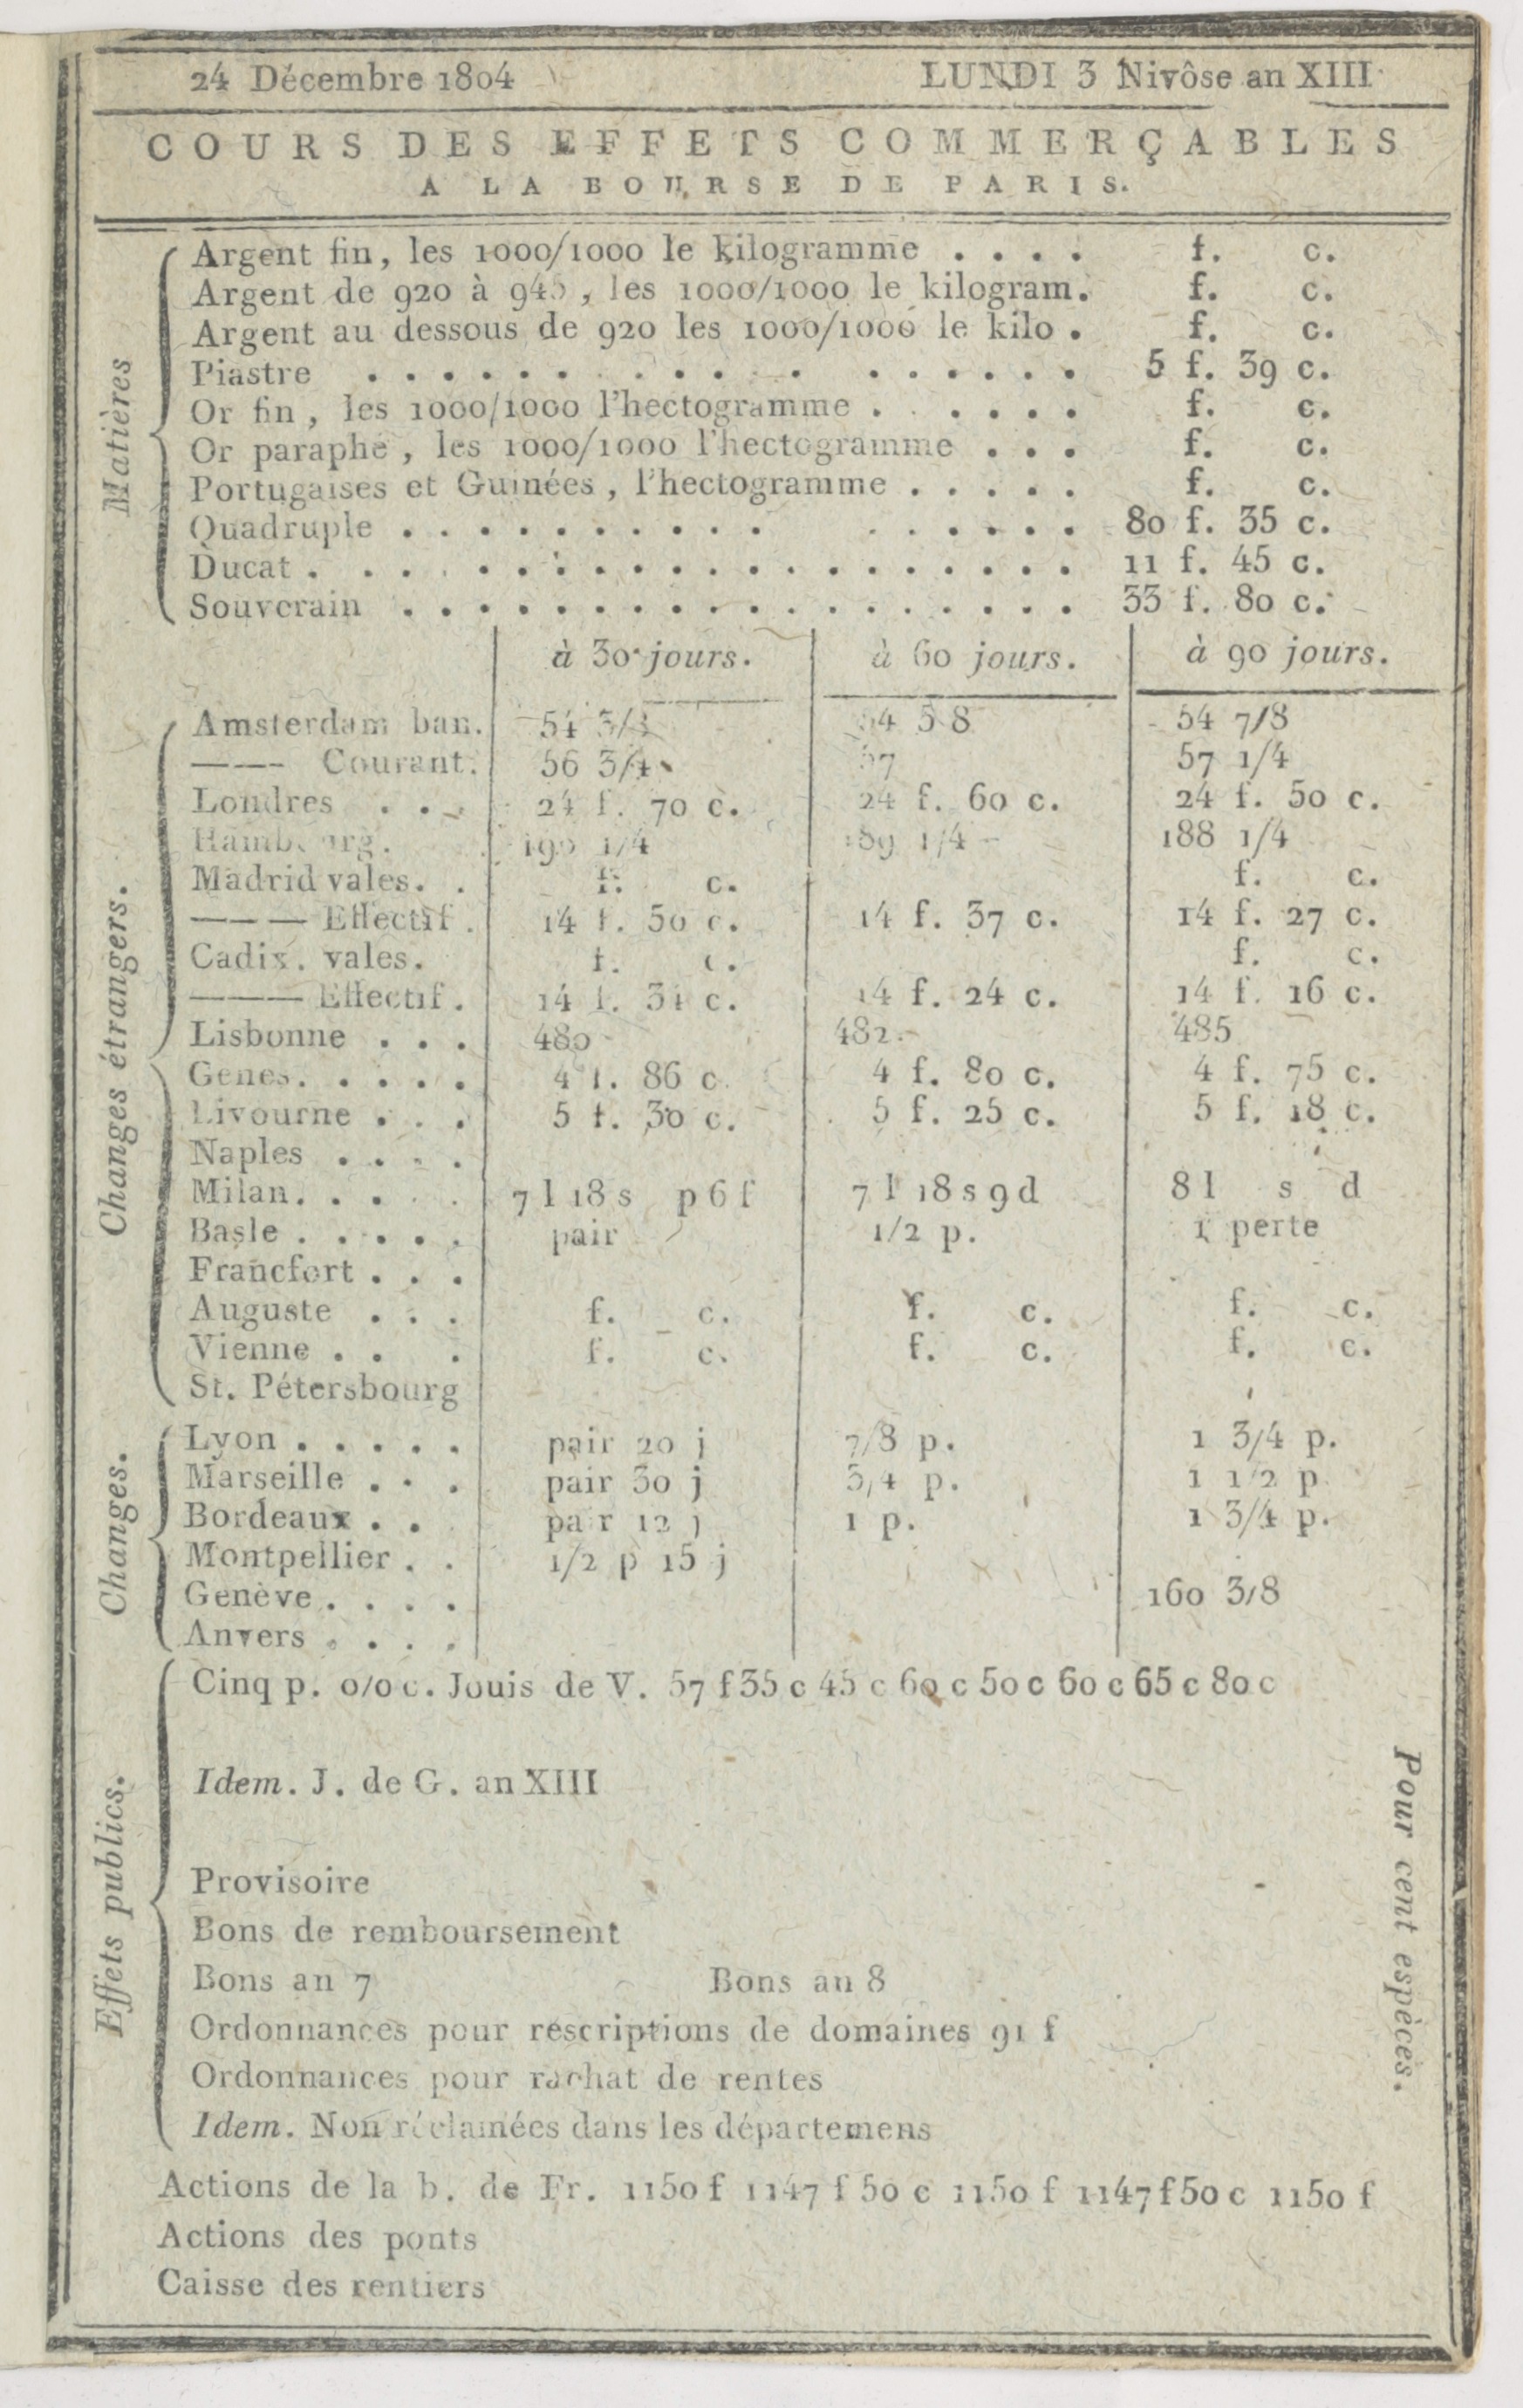 24 Décembre 1804 LUNDI 3 Nivôse an XIII
COURS DES EFFETS COMMERÇABLES
A LA BOURSE DE PARIS.
Matières
Argent fin, les 1000/1000 le kilogramme . . . . f. c.
Argent de 920 à 945, les 1000/1000 le kilogram. f. c.
Argent au dessous de 920 les 1000/1000 le kilo . f. c.
Piastre . . . . . . . . . . . . . . . . . . 5 f. 39 c.
Or fin, les 1000/1000 l'hectogramme . . . . . . f. c.
Or paraphé, les 1000/1000 l'hectogramme . . . f. c.
Portugaises et Guinées, l'hectogramme . . . . . f. c.
Quadruple . . . . . . . . . . . . . . . . 80 f. 35 c.
Ducat . . . . . . . . . . . . . . . . . . . . 11 f. 45 c.
Souverain . . . . . . . . . . . . . . . . . . 33 f. 80 c.
à 30 jours. à 60 jours. à 90 jours.
Changes étrangers.
Amsterdam ban. 54 3/8 54 5 8 54 7/8
——— Courant. 56 3/4 57 57 1/4
Londres . . . 24 f. 70 c. 24 f. 60 c. 24 f. 50 c.
Hambourg. 190 1/4 189 1/4 188 1/4
Madrid vales. . f. c. f. c.
——— Effectif . 14 f. 50 c. 14 f. 37 c. 14 f. 27 c.
Cadix. vales. f. c. f. c.
——— Effectif. 14 f. 34 c. 14 f. 24 c. 14 f. 16 c.
Lisbonne . . . 480 482 485
Genes. . . . . 4 f. 86 c. 4 f. 80 c. 4 f. 75 c.
Livourne . . . 5 f. 30 c. 5 f. 25 c. 5 f. 18 c.
Naples . . . .
Milan. . . . . 7 l 18 s p 6 f 7 l 18 s 9 d 8 l s d
Basle . . . . . pair 1/2 p. 1 perte
Francfort . . .
Auguste . . . f. c. f. c. f. c.
Vienne . . . f. c. f. c. f. c.
St. Pétersbourg
Changes.
Lyon . . . . . pair 20 j 7/8 p. 1 3/4 p.
Marseille . . . pair 30 j 3/4 p. 1 1/2 p
Bordeaux . . pair 12 j 1 p. 1 3/4 p.
Montpellier . . 1/2 p 15 j
Genève . . . . 160 3/8
Anvers . . . .
Effets publics.
Cinq p. 0/0 c. Jouis de V. 57 f 35 c 45 c 60 c 50 c 60 c 65 c 80 c
Idem. J. de G. an XIII
Provisoire
Bons de remboursement
Bons an 7 Bons an 8
Ordonnances pour rescriptions de domaines 91 f
Ordonnances pour rachat de rentes
Idem. Non réclamées dans les départemens
Pour cent espèces.
Actions de la b. de Fr. 1150 f 1147 f 50 c 1150 f 1147 f 50 c 1150 f
Actions des ponts
Caisse des rentiers